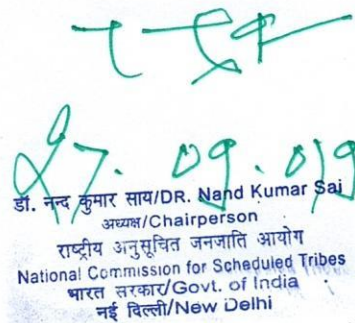 27.09.019
डॉ. नन्द कुमार साय/DR. Nand Kumar Sai
अध्यक्ष/Chairperson
राष्ट्रीय अनुसूचित जनजाति आयोग
National Commission for Scheduled Tribes
भारत सरकार/Govt. of India
नई दिल्ली/New Delhi